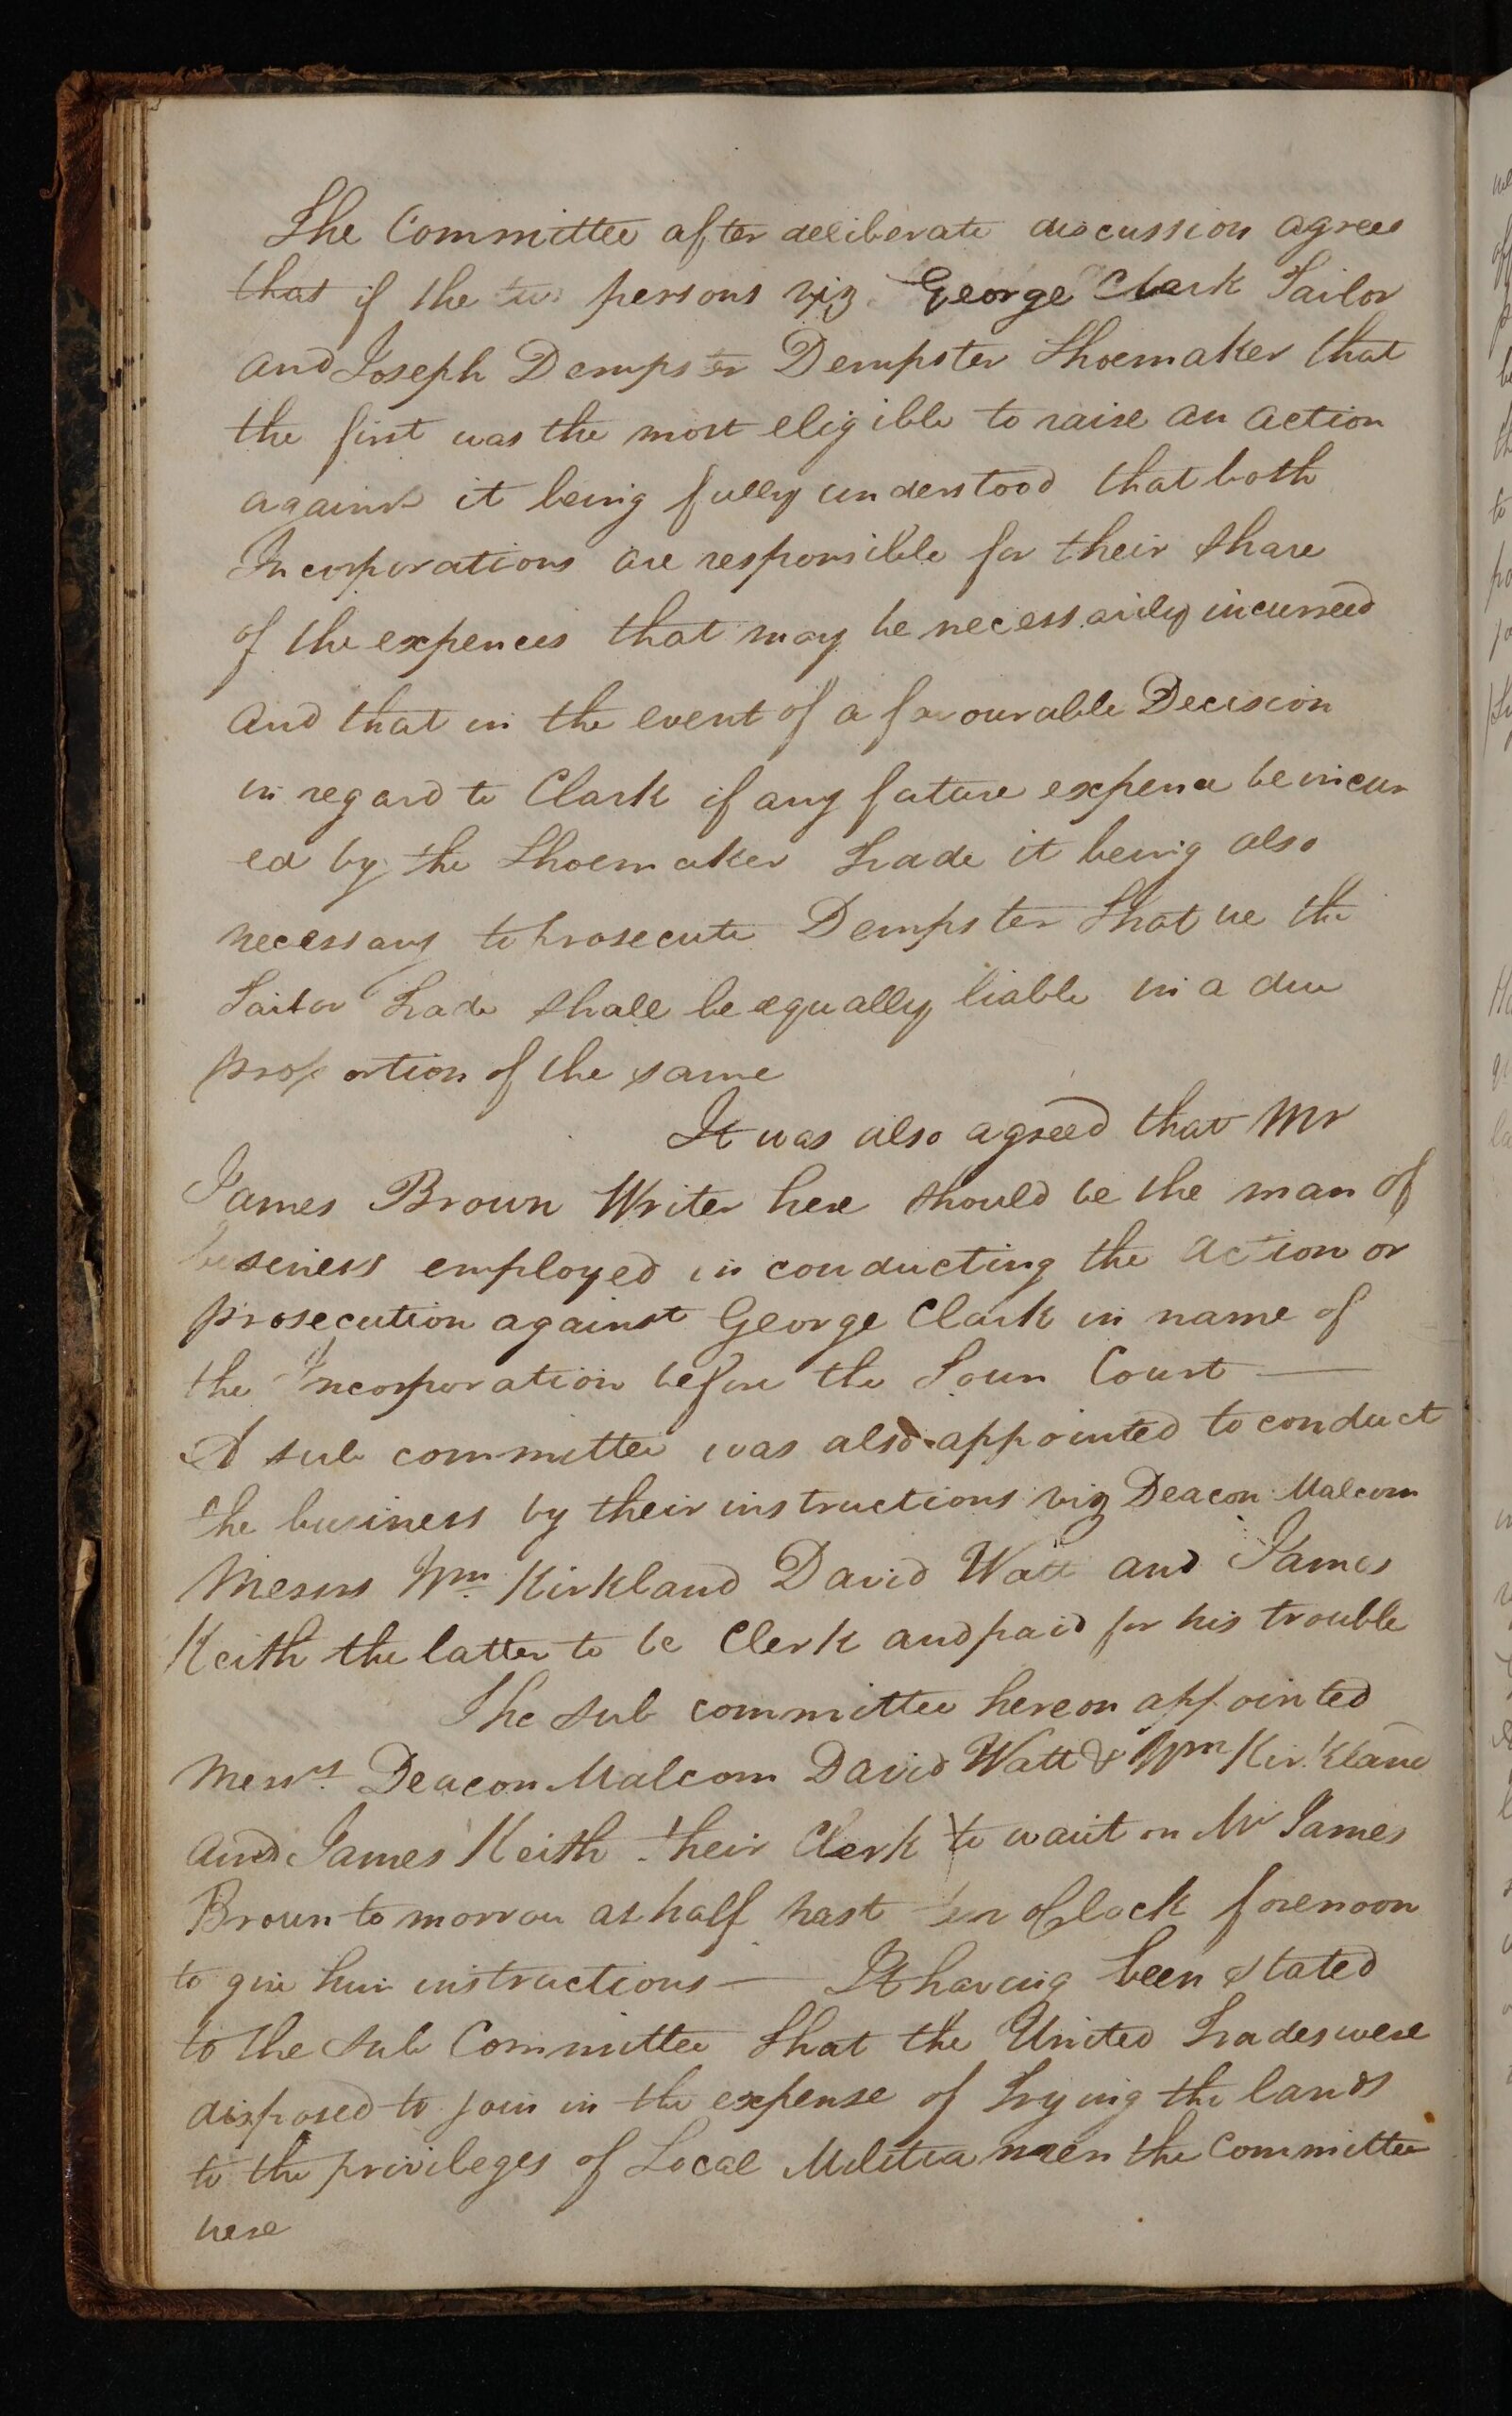 The Committee after deliberate discussion agrees
that if the two persons viz George Clark Tailor
and Joseph Dempster Dempster Shoemaker that
the first was the most eligible to raise an action
against it being fully understood that both
Incorporations are responsible for their share
of the expences that may be necessarily incurred
and that in the event of a favourable Decision
in regard to Clark if any future expence be incur
ed by the Shoemaker Trade it being also
necessary to prosecute Dempster that we the
Tailor Trade shall be equally liable in a due
proportion of the same
It was also agreed that Mr
James Brown Writer here should be the man of
buseness employed in conducting the action or
prosecution against George Clark in name of
the Incorporation before the Toun Court —
A sub committee was also appointed to conduct
the business by their instructions viz Deacon Malcom
Messrs Wm Kirkland David Watt and James
Keith the latter to be Clerk and paid for his trouble
The sub committee hereon appointed
Messrs Deacon Malcom David Watt & Wm Kirkland
and James Keith their Clerk to wait on Mr James
Broun to morrow at half past ten oClock forenoon
to give him instructions — It having been stated
to the sub Committee that the United Trades were
disposed to join in the expense of trying the lands
to the privileges of Local Militia men the Committee
were